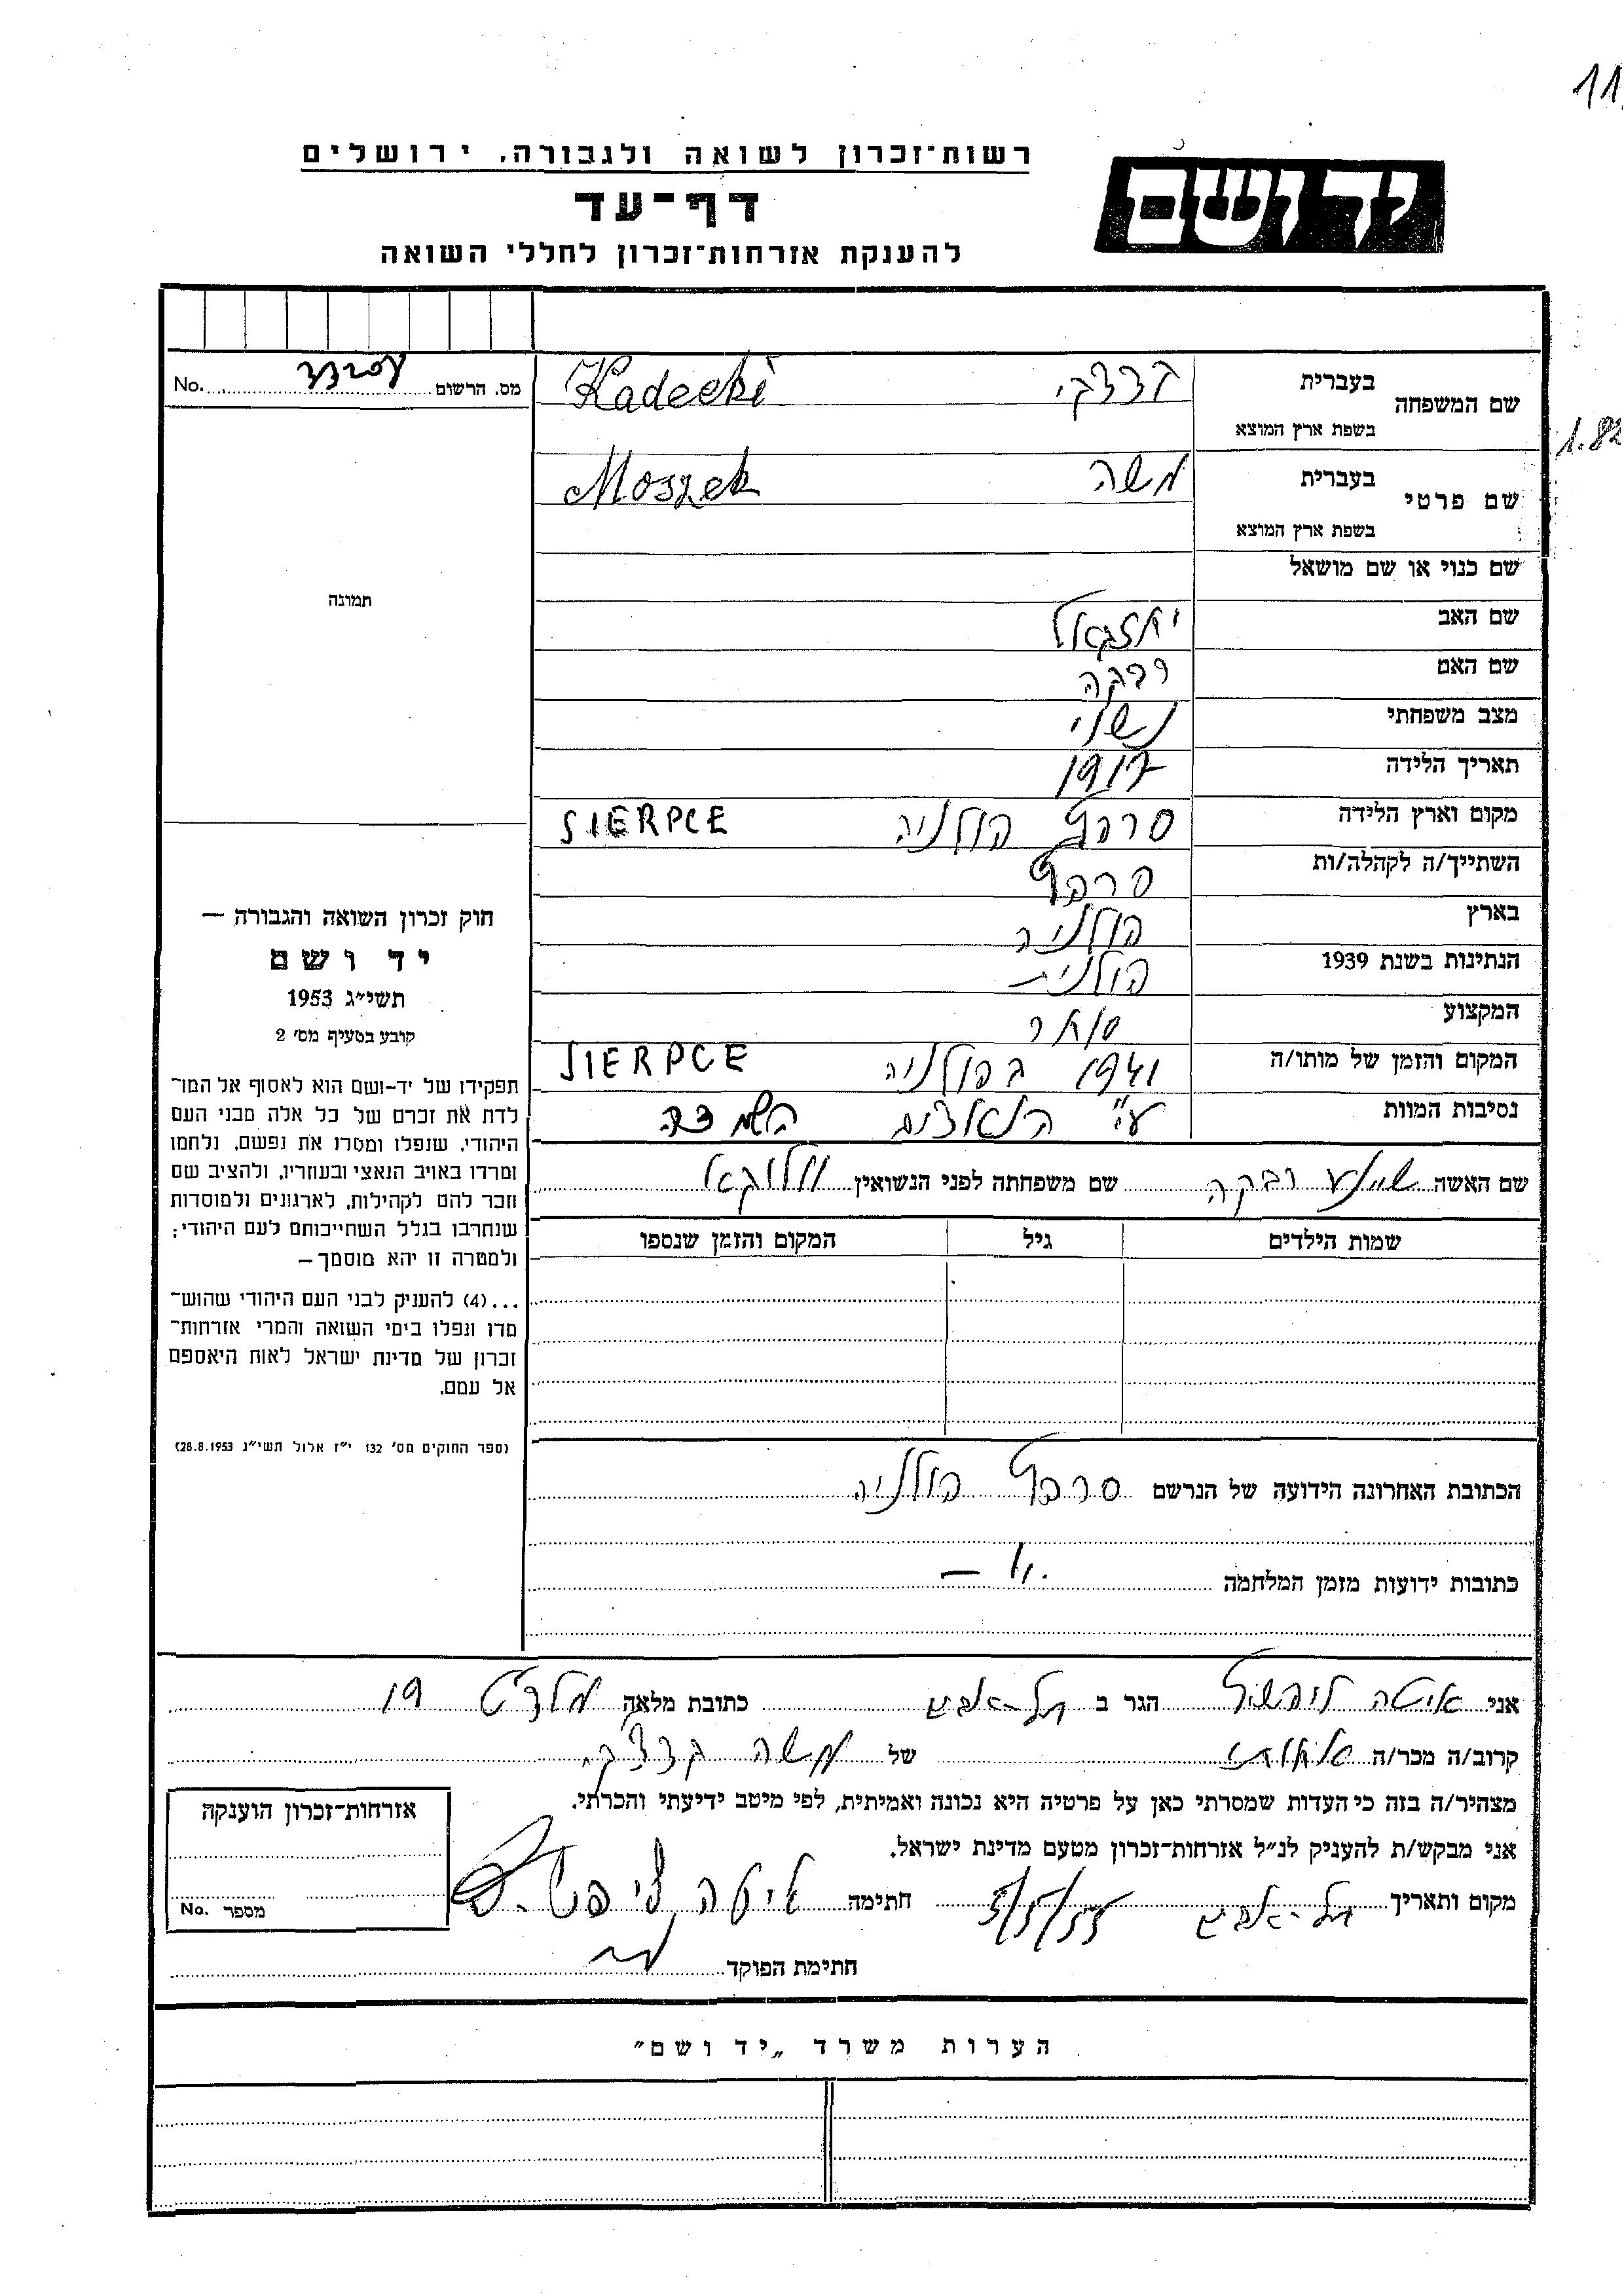 11
רשות־זכרון לשואה ולגבורה, ירושלים
יד ושם
דף־עד
להענקת אזרחות־זכרון לחללי השואה
מס. הרשום No.
שם המשפחה בעברית קדצקי Kadecki
בשפת ארץ המוצא
1.82
שם פרטי בעברית משה Moszek
בשפת ארץ המוצא
שם כנוי או שם מושאל
תמונה
שם האב יחזקאל
שם האם רבקה
מצב משפחתי נשוי
תאריך הלידה 1917
מקום וארץ הלידה סרפץ פולניה SIERPCE
השתייך/ה לקהלה/ות סרפץ
בארץ פולניה
הנתינות בשנת 1939 פולנית
המקצוע סוחר
המקום והזמן של מותו/ה 1941 בפולניה SIERPCE
נסיבות המוות ע"י הנאצים השמדה
שם האשה שיינע רבקה שם משפחתה לפני הנשואין
שמות הילדים גיל המקום והזמן שנספו
חוק זכרון השואה והגבורה —
יד ושם
תשי״ג 1953
קובע בסעיף מס׳ 2
תפקידו של יד־ושם הוא לאסוף אל המו־
לדת את זכרם של כל אלה מבני העם
היהודי, שנפלו ומסרו את נפשם, נלחמו
ומרדו באויב הנאצי ובעוזריו, ולהציב שם
וזכר להם לקהילות, לארגונים ולמוסדות
שנחרבו בגלל השתייכותם לעם היהודי;
ולמטרה זו יהא מוסמך —
...(4) להעניק לבני העם היהודי שהוש־
מדו ונפלו בימי השואה והמרי אזרחות־
זכרון של מדינת ישראל לאות היאספם
אל עמם.
(ספר החוקים מס׳ 132 י״ז אלול תשי״ג 28.8.1953)
הכתובת האחרונה הידועה של הנרשם סרפץ פולניה
כתובות ידועות מזמן המלחמה —
אני איטה ליפשיץ הגר ב תל־אביב כתובת מלאה 19
קרוב/ה מכר/ה של משה קדצקי
מצהיר/ה בזה כי העדות שמסרתי כאן על פרטיה היא נכונה ואמיתית, לפי מיטב ידיעתי והכרתי.
אני מבקש/ת להעניק לנ״ל אזרחות־זכרון מטעם מדינת ישראל.
מקום ותאריך תל־אביב 5/5/55 חתימה איטה ליפשיץ
חתימת הפוקד
אזרחות־זכרון הוענקה
מספר No.
הערות משרד „יד ושם״